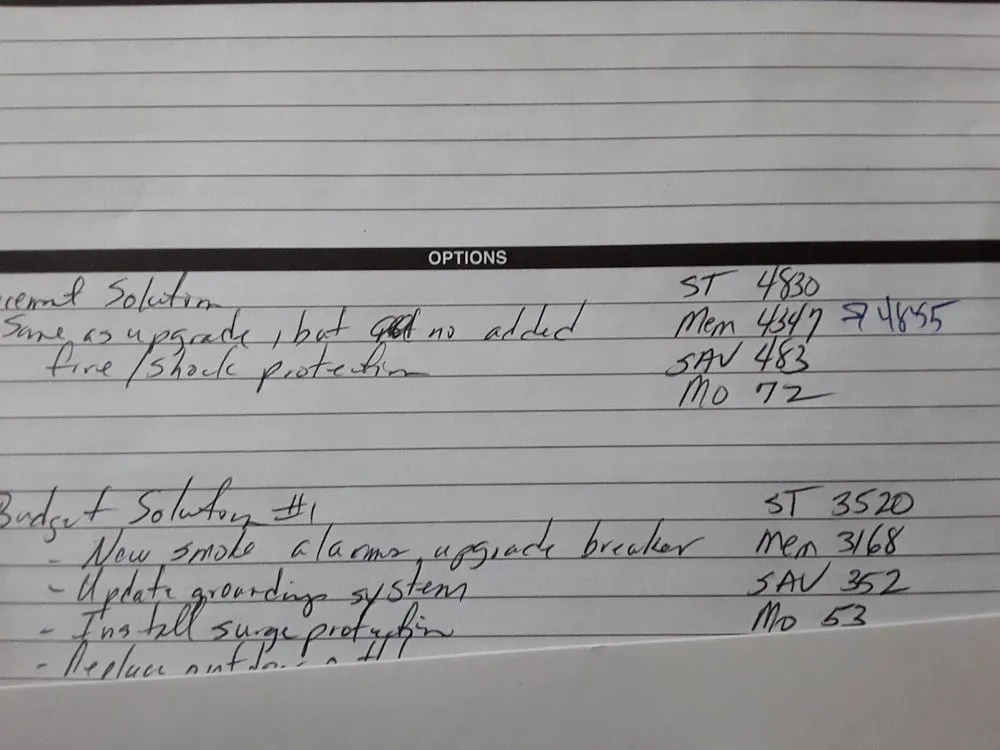 OPTIONS
cement Solution ST 4830
Same as upgrade, but no added Mem 4347 → 4855
fire/shock protection SAV 483
Mo 72
Budget Solution #1 ST 3520
- New smoke alarms, upgrade breaker Mem 3168
- Update grounding system SAV 352
- Install surge protection Mo 53
- Replace